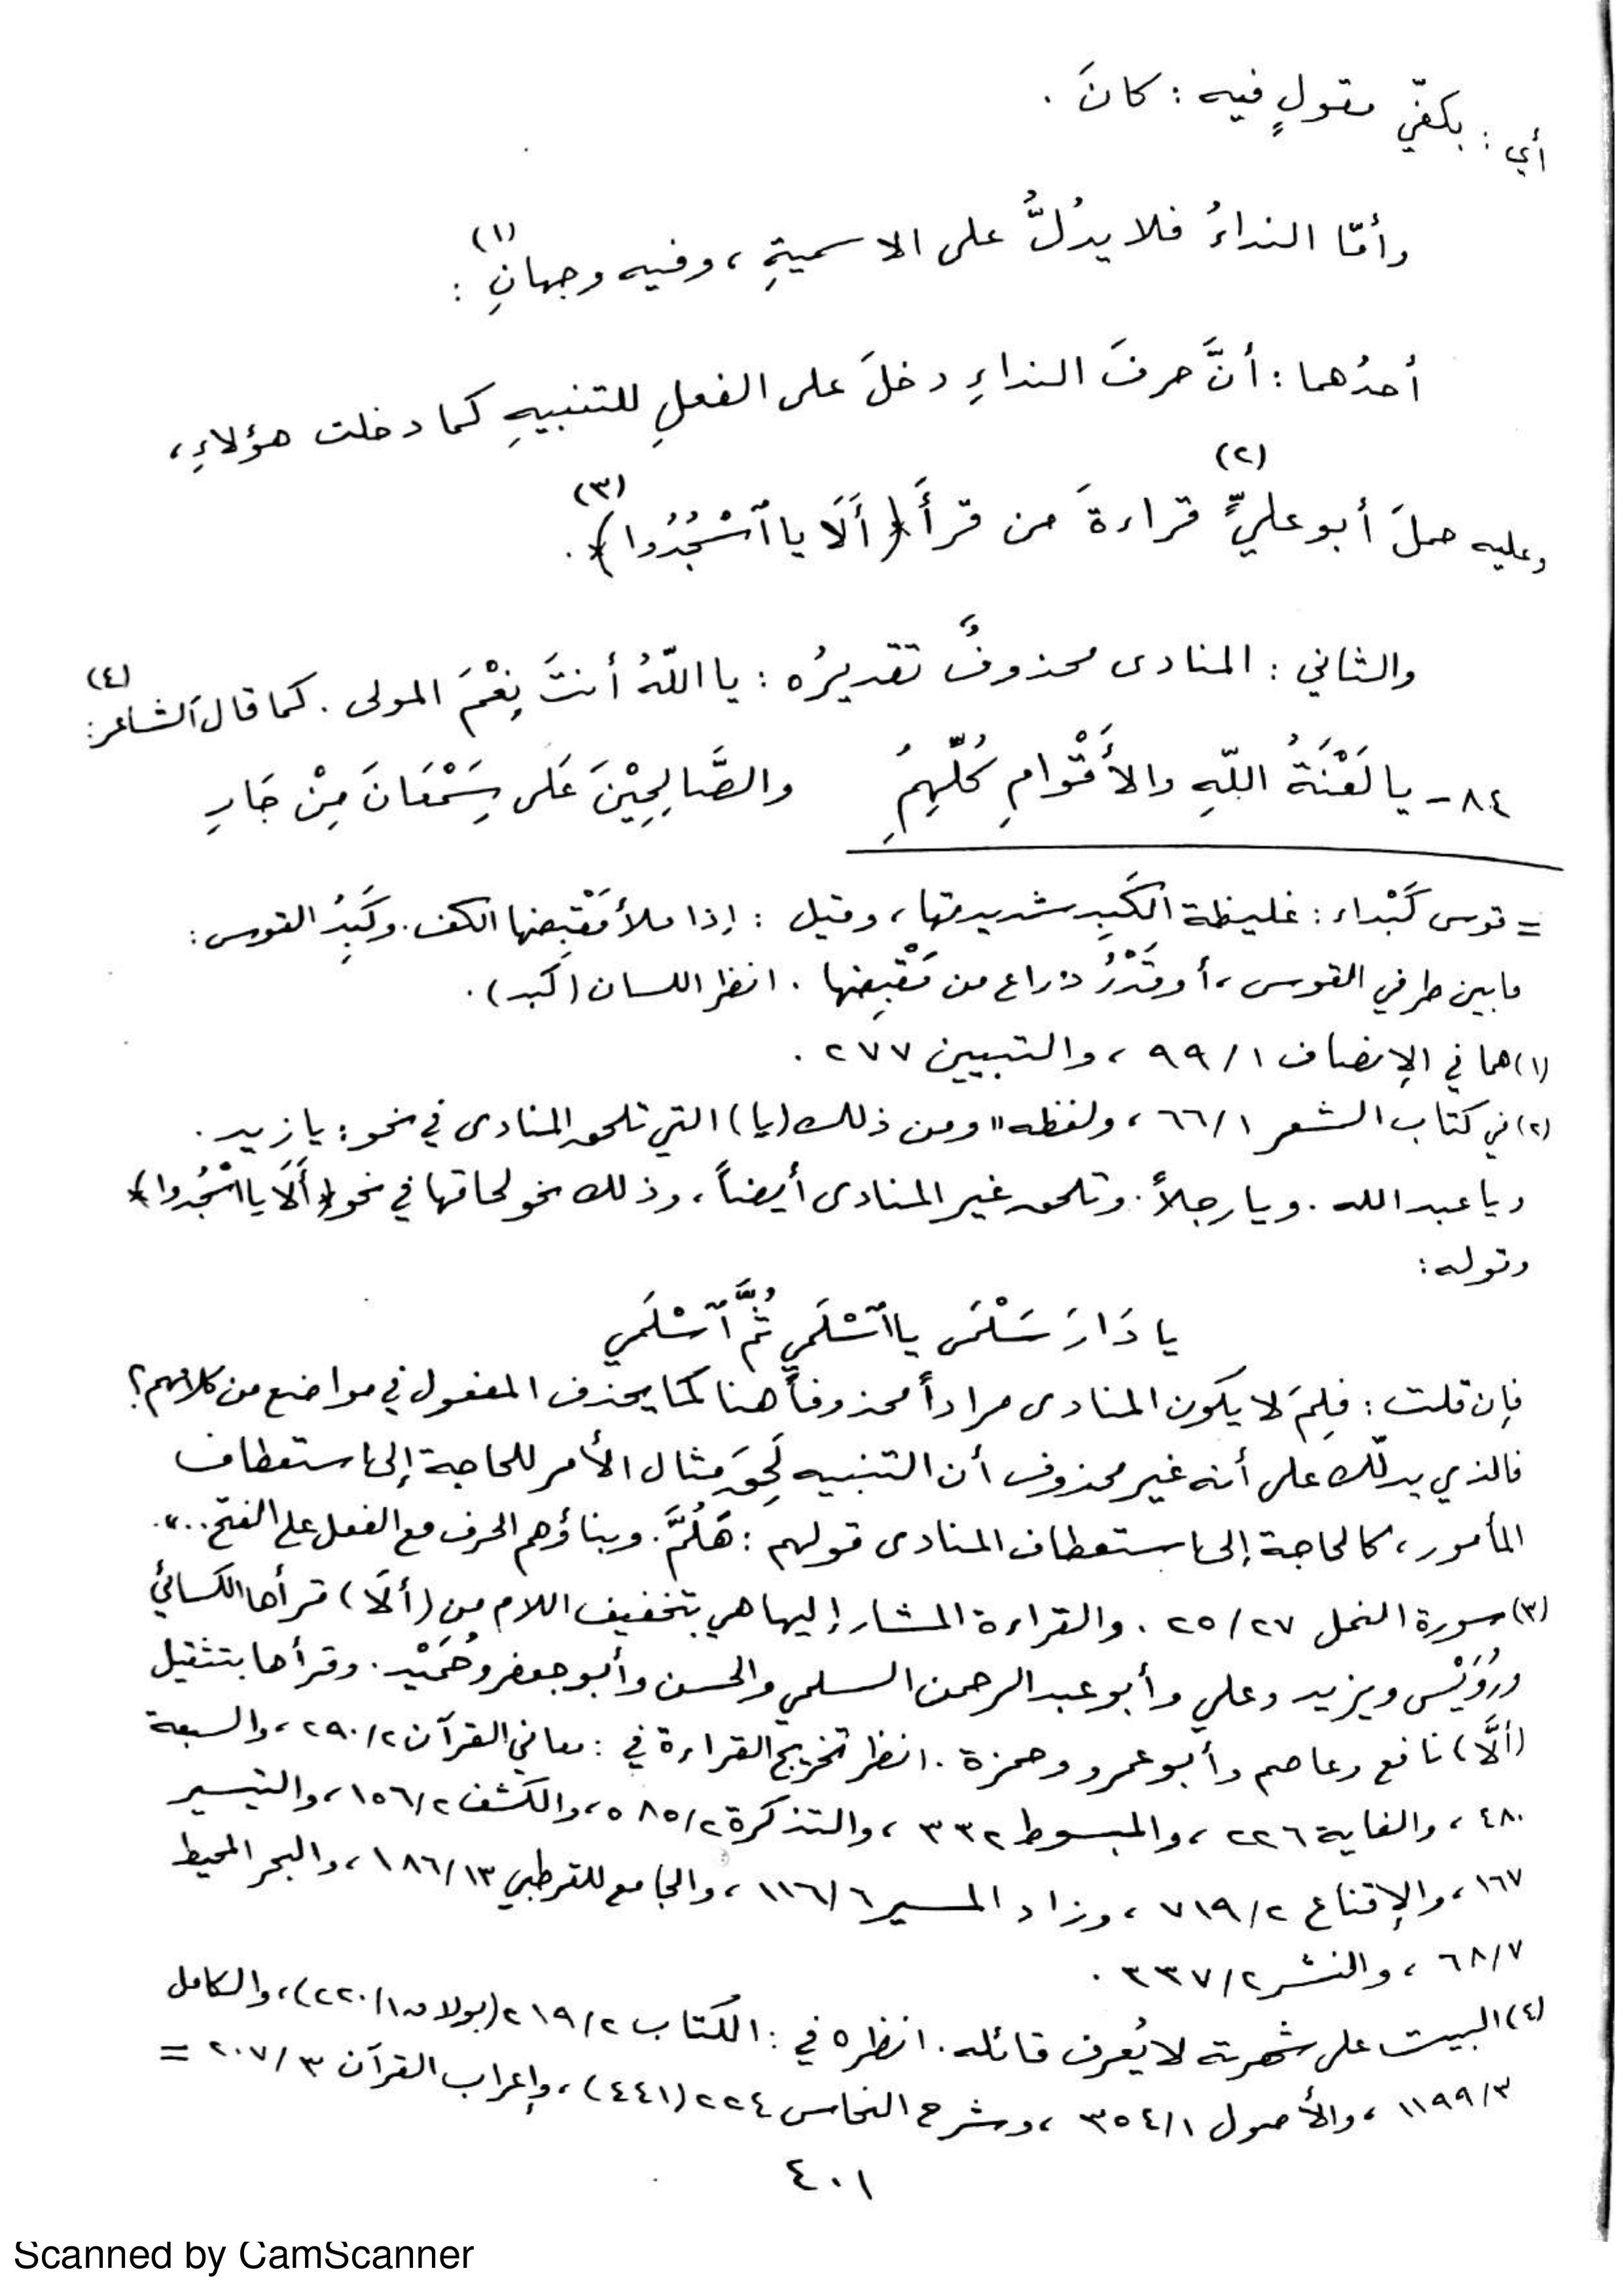 أي : بكفّي مقولٍ فيه : كانَ .
وأمّا النداءُ فلا يدُلُّ على الاسميةِ ، وفيه وجهانِ (١) :
أحدُهما : أنَّ حرفَ النداءِ دخلَ على الفعلِ للتنبيهِ كما دخلت هؤلاءِ ،
وعليه حملَ أبو عليٍّ (٢) قراءةَ من قرأَ ﴿أَلَا يا ٱسْجُدُوا﴾ (٣) .
والثاني : المنادى محذوفٌ تقديرُه : يا اللّهُ أنتَ نِعْمَ المولى . كما قال الشاعر (٤) :
٨٤ - يا لَعْنَةُ اللّهِ والأَقْوامِ كُلِّهِمُ والصَّالِحِيْنَ عَلى سِمْعَانَ مِنْ جَارِ
= قوس كَبْداء : غليظة الكَبِد شديدتها ، وقيل : إذا ملأ مَقْبِضها الكف . وكَبِدُ القوس :
ما بين طرفي القوس ، أو قَدْرُ ذراع من مَقْبِضها . انظر اللسان (كبد) .
(١) هما في الإنصاف ١/٩٩ ، والتبيين ٢٧٧ .
(٢) في كتاب الشعر ١/٦٦ ، ولفظه "ومن ذلك (يا) التي تلحق المنادى في نحو : يا زيد .
ويا عبد الله . ويا رجلاً . وتلحق غير المنادى أيضاً ، وذلك نحو لحاقها في نحو ﴿أَلَا يا اسْجُدوا﴾
وقوله :
يا دَارَ سَلْمَى يا ٱسْلَمي ثُمَّ ٱسْلَمي
فإن قلت : فلِمَ لا يكون المنادى مراداً محذوفاً هنا كما يحذف المفعول في مواضع من كلامهم ؟
فالذي يدلّك على أنه غير محذوف أن التنبيه لَحِقَ مثال الأمر للحاجة إلى استعطاف
المأمور ، كالحاجة إلى استعطاف المنادى قولهم : هَلُمَّ . وبناؤهم الحرف مع الفعل على الفتح ..." .
(٣) سورة النمل ٢٧/٢٥ . والقراءة المشار إليها هي بتخفيف اللام من (ألَا) قرأها الكسائيُّ
ورُوَيْس ويزيد وعلي وأبو عبد الرحمن السلمي والحسن وأبو جعفر وحُمَيْد . وقرأها بتثقيل
(ألَّا) نافع وعاصم وأبو عمرو وحمزة . انظر تخريج القراءة في : معاني القرآن ٢/٢٩٠ ، والسبعة
٤٨٠ ، والغاية ٢٢٦ ، والمبسوط ٣٣٢ ، والتذكرة ٢/٥٨٥ ، والكشف ٢/١٥٦ ، والتيسير
١٦٧ ، والإقناع ٢/٧١٩ ، وزاد المسير ٦/١١٦ ، والجامع للقرطبي ١٣/١٨٦ ، والبحر المحيط
٧/٦٨ ، والنشر ٢/٣٣٧ .
(٤) البيت على شهرته لا يُعرف قائله . انظره في : الكتاب ٢/٢١٩ (بولاق ١/٢٢٠) ، والكامل
٣/١١٩٩ ، والأصول ١/٣٥٤ ، وشرح النحاس ٢٢٤ (٤٤١) ، وإعراب القرآن ٣/٢٠٧ =
٤٠١
Scanned by CamScanner